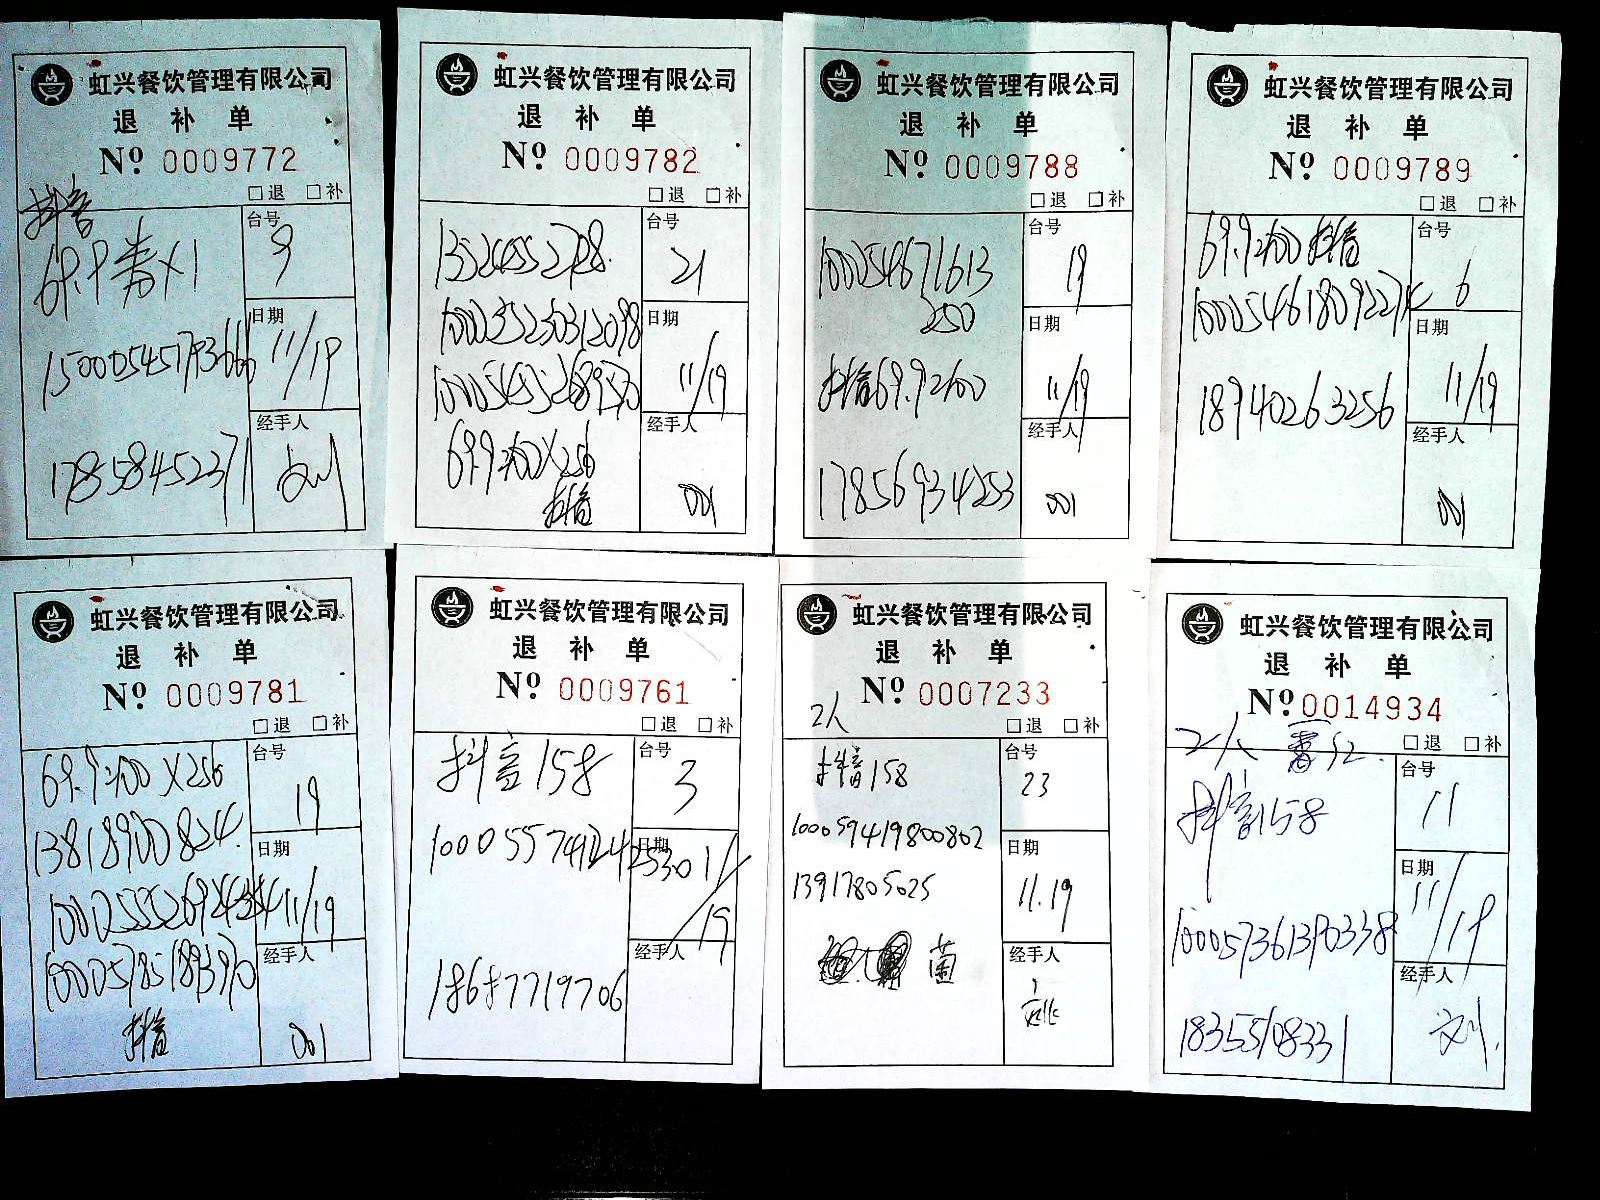 虹兴餐饮管理有限公司
退 补 单
Nº 0009772
□退 □补
抖音
69.9 番X1
台号
9
日期
11/19
经手人
17858452371
虹兴餐饮管理有限公司
退 补 单
Nº 0009782
□退 □补
台号
21
日期
11/19
69.9代100X256
抖音
经手人
001
虹兴餐饮管理有限公司
退 补 单
Nº 0009788
□退 □补
1000254671613
250
台号
19
日期
11/19
抖音69.9代100
经手人
17856934253
001
虹兴餐饮管理有限公司
退 补 单
Nº 0009789
□退 □补
69.9代100 抖音
台号
6
日期
11/19
18940263256
经手人
001
虹兴餐饮管理有限公司
退 补 单
Nº 0009781
□退 □补
69.9代100 X256
13818900824
台号
19
日期
11/19
抖音
经手人
001
虹兴餐饮管理有限公司
退 补 单
Nº 0009761
□退 □补
抖音158
台号
3
日期
11/19
18687719706
经手人
虹兴餐饮管理有限公司
退 补 单
Nº 0007233
2人
□退 □补
抖音158
100059419800802
13917805025
菌
台号
23
日期
11.19
经手人
虹兴餐饮管理有限公司
退 补 单
Nº 0014934
2人
□退 □补
抖音158
100057361390338
18355108331
台号
11
日期
11/19
经手人